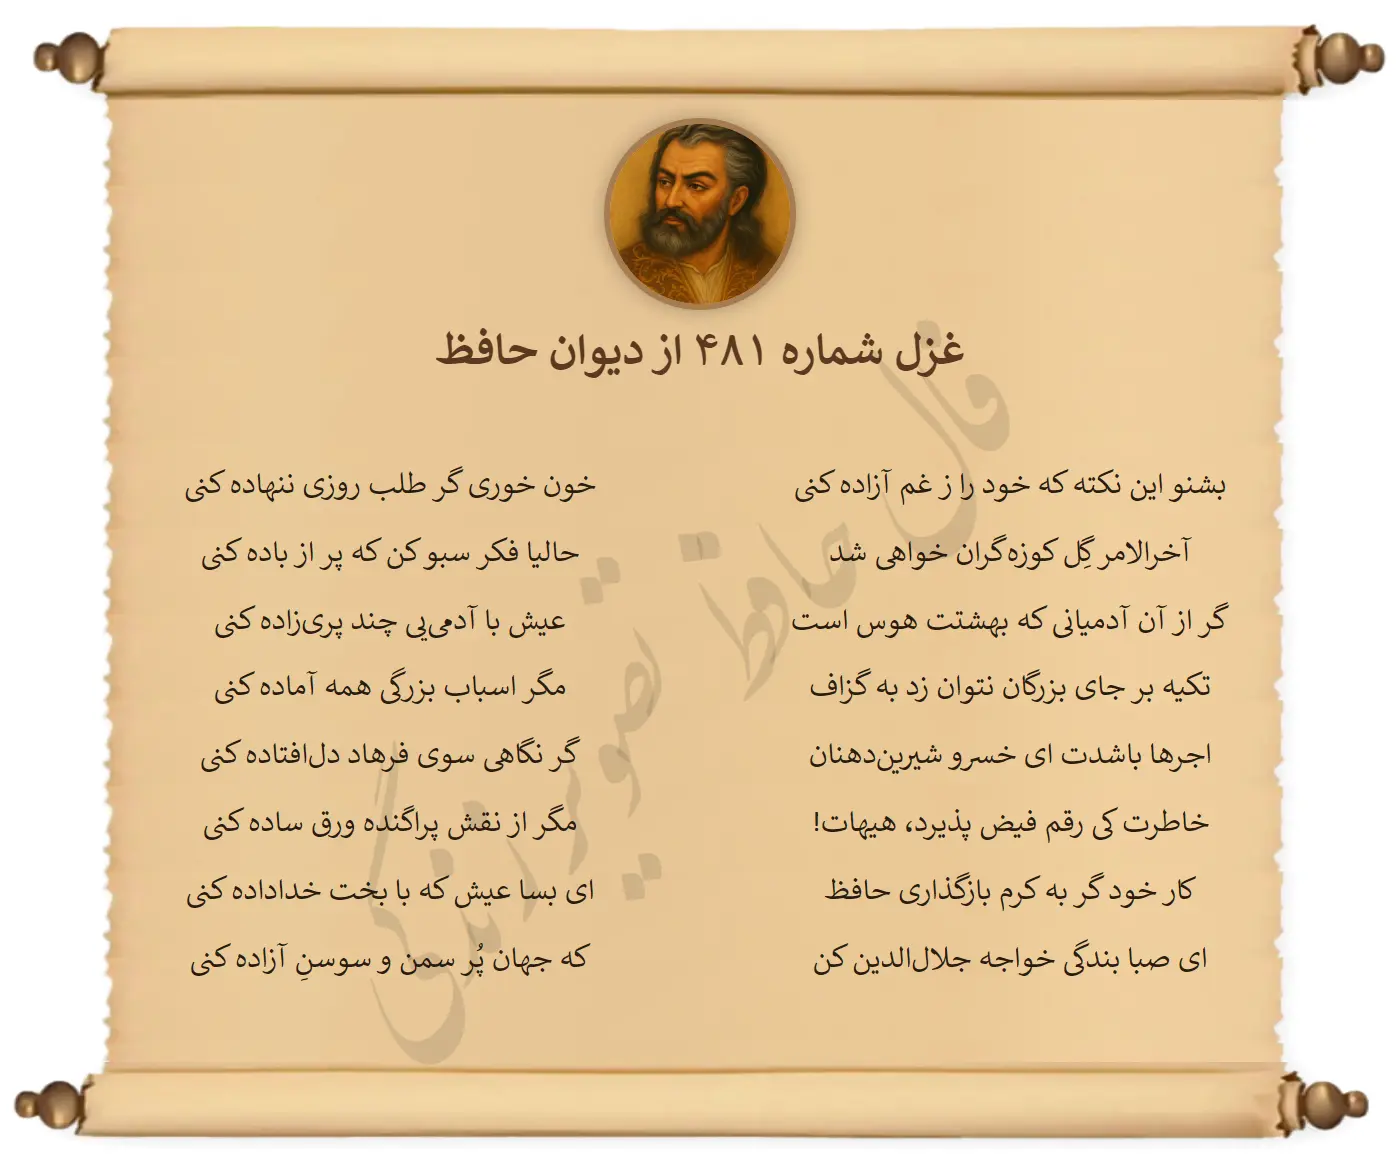 غزل شماره ۴۸۱ از دیوان حافظ
بشنو این نکته که خود را ز غم آزاده کنی
خون خوری گر طلب روزی ننهاده کنی
آخرالامر گِل کوزه‌گران خواهی شد
حالیا فکر سبو کن که پر از باده کنی
گر از آن آدمیانی که بهشتت هوس است
عیش با آدمی‌یی چند پری‌زاده کنی
تکیه بر جای بزرگان نتوان زد به گزاف
مگر اسباب بزرگی همه آماده کنی
اجرها باشدت ای خسرو شیرین‌دهنان
گر نگاهی سوی فرهاد دل‌افتاده کنی
خاطرت کی رقم فیض پذیرد، هیهات!
مگر از نقش پراگنده ورق ساده کنی
کار خود گر به کرم بازگذاری حافظ
ای بسا عیش که با بخت خداداده کنی
ای صبا بندگی خواجه جلال‌الدین کن
که جهان پُر سمن و سوسنِ آزاده کنی
فال حافظ تصویر زندگی